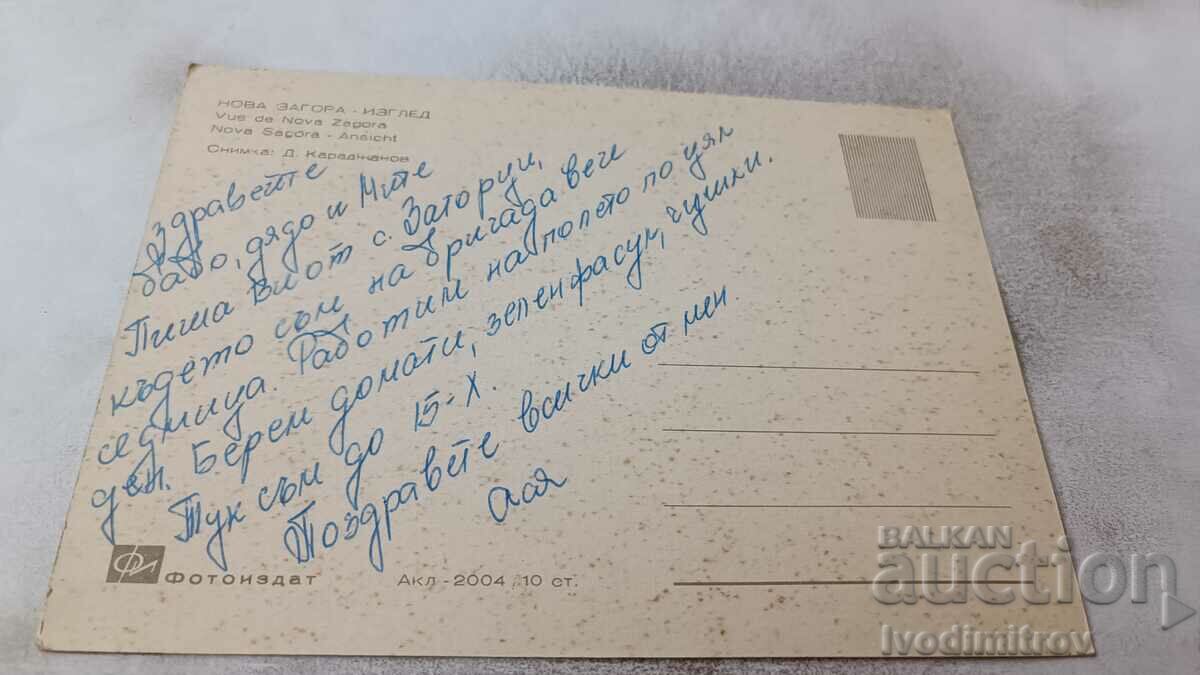 НОВА ЗАГОРА - ИЗГЛЕД
Vue de Nova Zagora
Nova Sagora - Ansicht
Снимка: Д. Караджанов
Здравейте
бабо, дядо и Мите
Пиша Ви от с. Загорци,
където съм на бригада вече
седмица. Работим на полето по цял
ден. Берем домати, зеленфасул, чушки.
Тук съм до 15-X.
Поздравете всички от мен.
Ася
Фотоиздат
Акл - 2004, 10 ст.
BALKAN
auction
Ivodimitrov